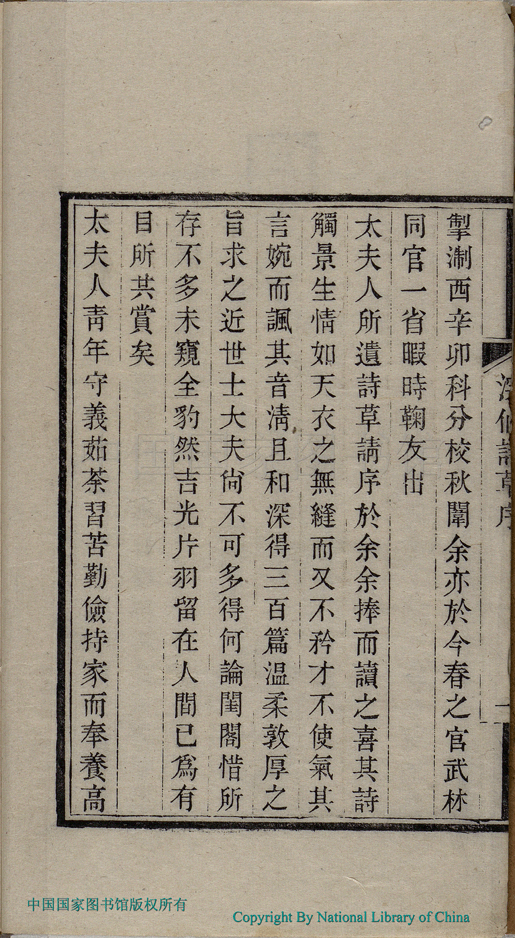 掣淛西辛卯科分校秋闈余亦於今春之官武林
同官一省暇時鞠友出
太夫人所遺詩草請序於余余捧而讀之喜其詩
觸景生情如天衣之無縫而又不矜才不使氣其
言婉而諷其音淸且和深得三百篇溫柔敦厚之
旨求之近世士大夫尙不可多得何論閨閣惜所
存不多未窺全豹然吉光片羽留在人間已爲有
目所共賞矣
太夫人靑年守義茹荼習苦勤儉持家而奉養高
中国国家图书馆版权所有
Copyright By National Library of China